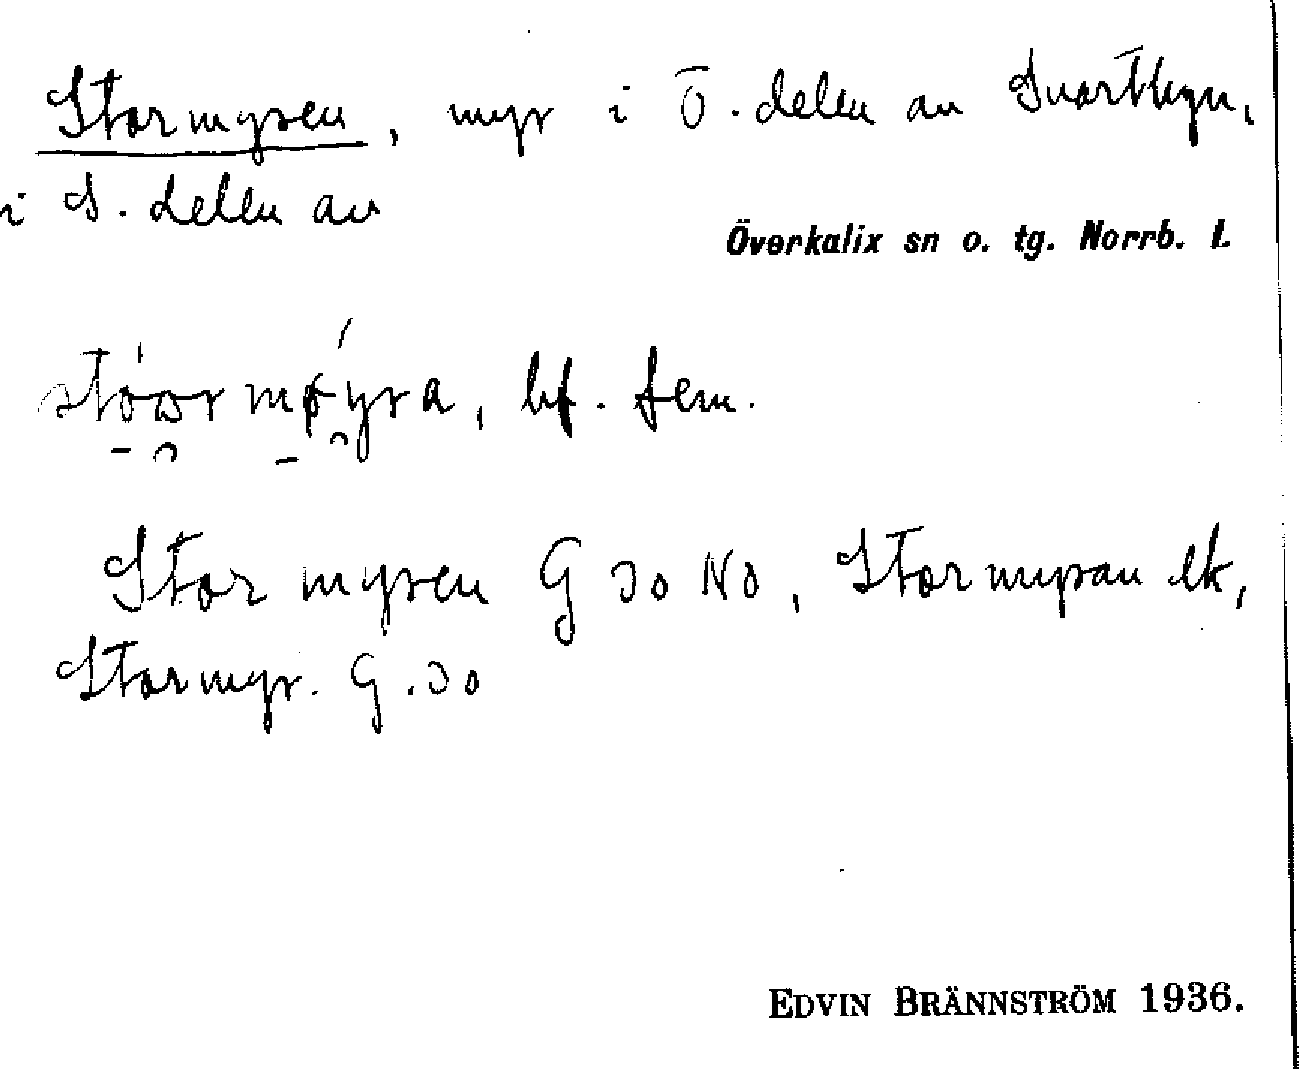 Stormyren, myr i Ö. delen av Svartbyn,
i S. delen av
Överkalix sn o. tg. Norrb. l.
stóormǿyra, bf. fem.
Stormyren G 30 NO, Stormyran ek,
Stormyr. G. 30
EDVIN BRÄNNSTRÖM 1936.